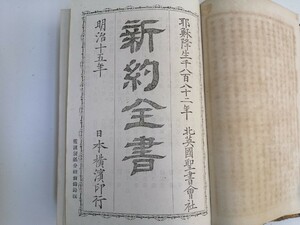 耶穌降生千八百八十二年
北英國聖書會社
新約全書
明治十五年
日本橫濱印行